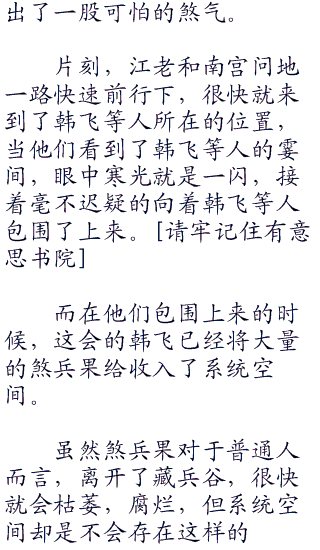 出了一股可怕的煞气。
片刻，江老和南宫问地
一路快速前行下，很快就来
到了韩飞等人所在的位置，
当他们看到了韩飞等人的霎
间，眼中寒光就是一闪，接
着毫不迟疑的向着韩飞等人
包围了上来。[请牢记住有意
思书院]
而在他们包围上来的时
候，这会的韩飞已经将大量
的煞兵果给收入了系统空
间。
虽然煞兵果对于普通人
而言，离开了藏兵谷，很快
就会枯萎，腐烂，但系统空
间却是不会存在这样的